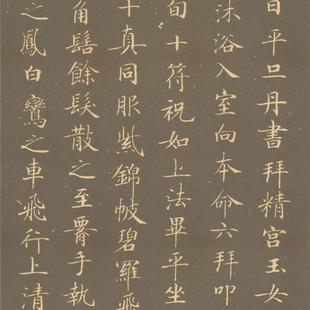 日平旦丹書拜精宮玉女
沐浴入室向本命六拜叩
旬十符祝如上法畢平坐
十真同服紫錦帔碧羅飛
角髻餘髮散之至臂手執
之鳳白鸞之車飛行上清